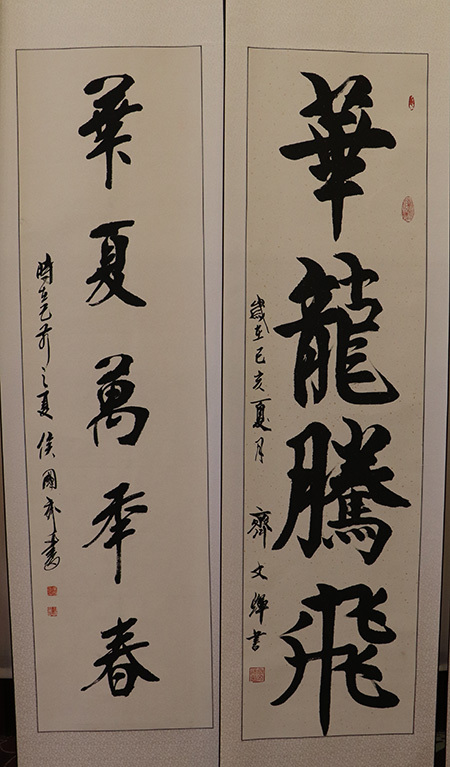 華龍騰飛
歲在己亥夏月 齊文輝書
華夏萬年春
時在己亥之夏 侯國書